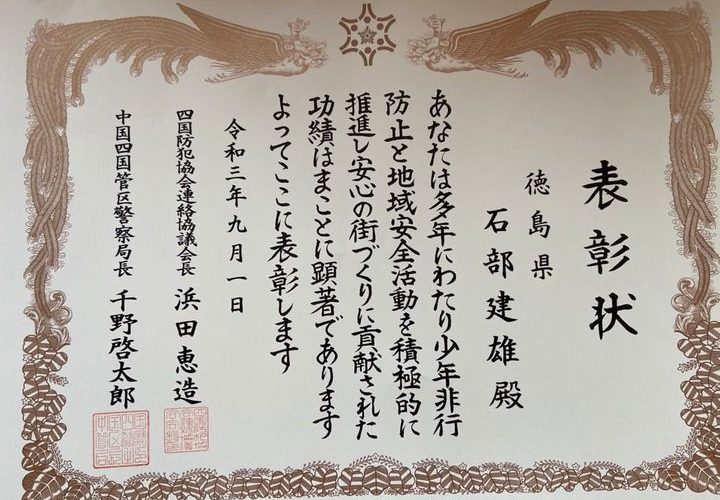 表彰状
徳島県
石部建雄殿
あなたは多年にわたり少年非行
防止と地域安全活動を積極的に
推進し安心の街づくりに貢献された
功績はまことに顕著であります
よってここに表彰します
令和三年九月一日
四国防犯協会連絡協議会長 浜田恵造
中国四国管区警察局長 千野啓太郎